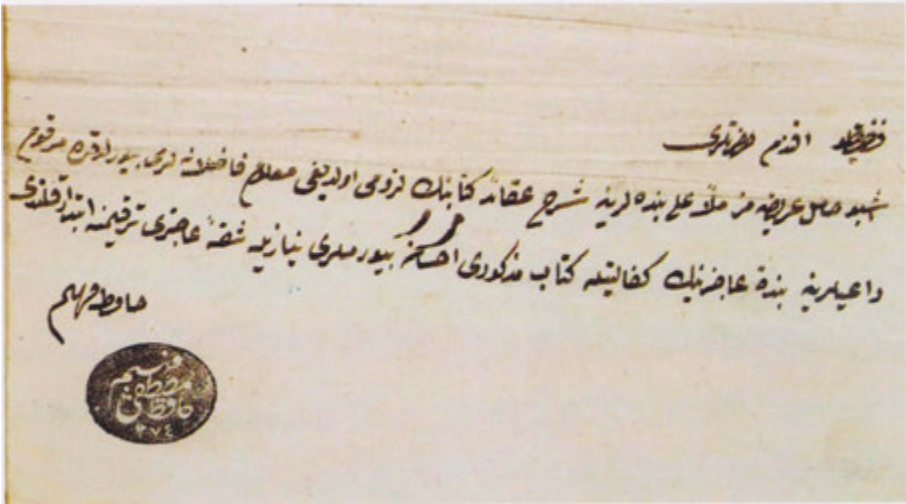 فضيلتلو افندم حضرتلرى
اشبو حامل عريضه من ملا على بنده لرينه شرح عقائد كتابنك لزومى اولديغى معلوم فاضلانه لرى بيورلدقده مرقوم
داعيلرينه بنده عاجزينك كفالتيله كتاب مذكورى احسان بيورملرى نيازيله شقهٔ عاجزى ترقيمنه ابتدار قلندى
حافظ فهيم
فهيم
مصطفى
حافظ
٢٧٤